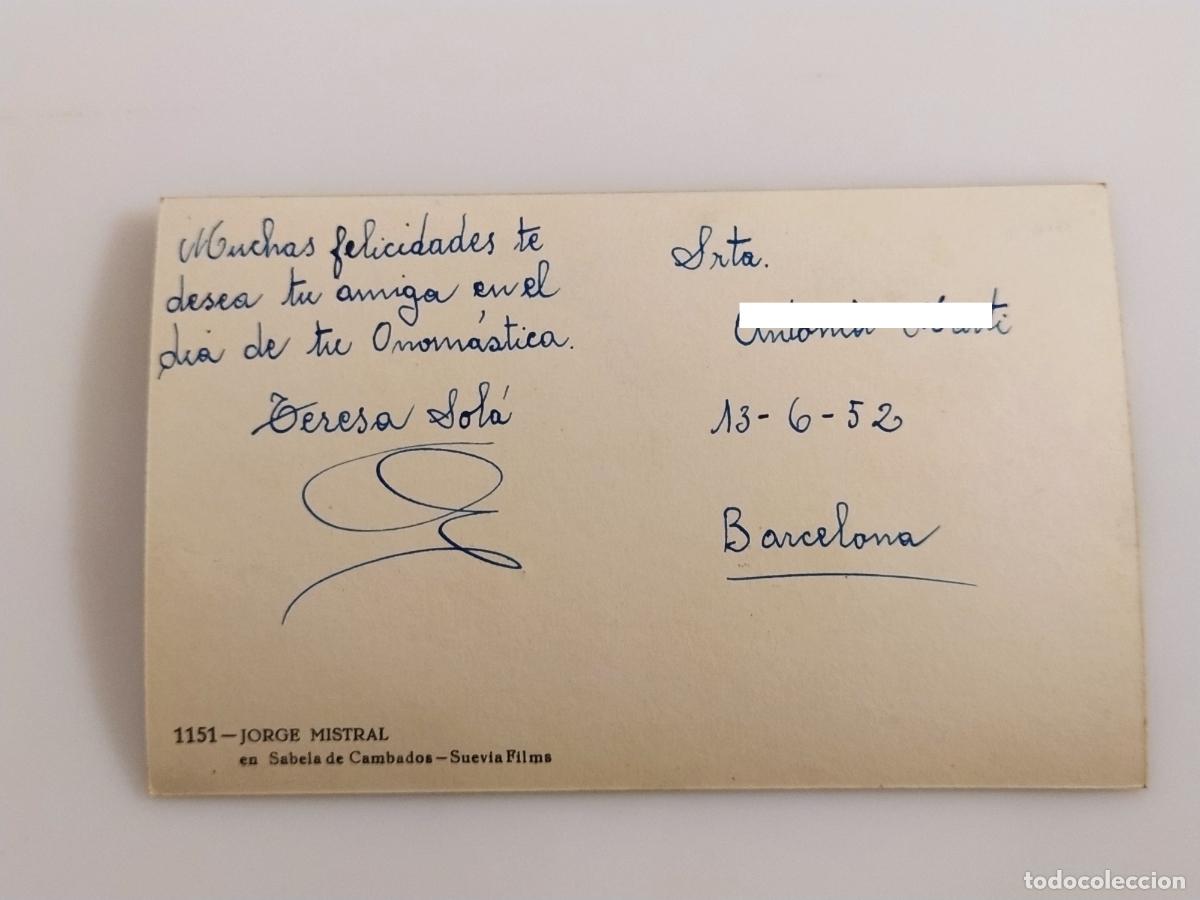 Muchas felicidades te
desea tu amiga en el
día de tu Onomástica.
Teresa Solá
Srta.
13-6-52
Barcelona
1151—JORGE MISTRAL
en Sabela de Cambados—Suevia Films
todocoleccion